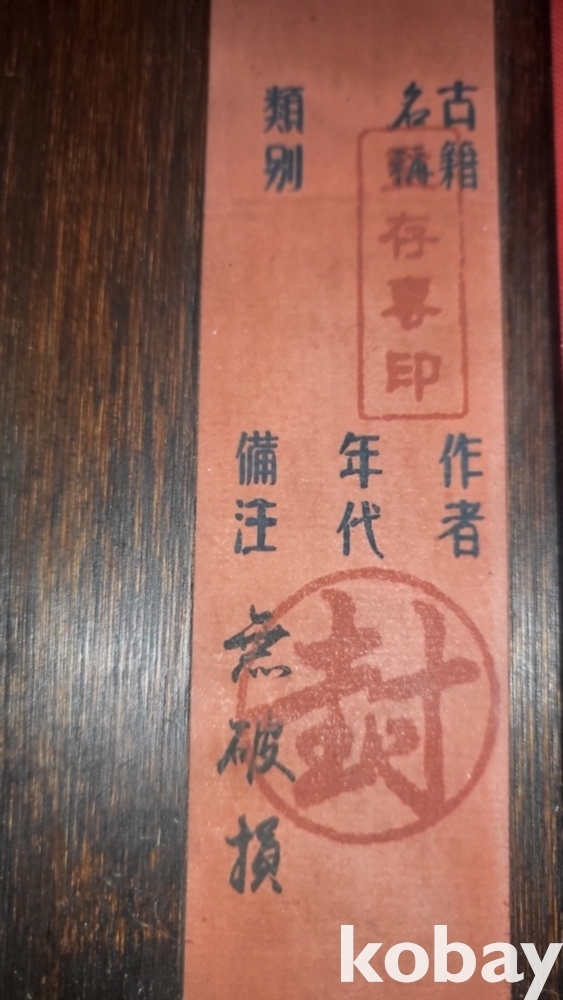 古籍
名稱
類别
存書印
作者
年代
備注
無破損
封
kobay